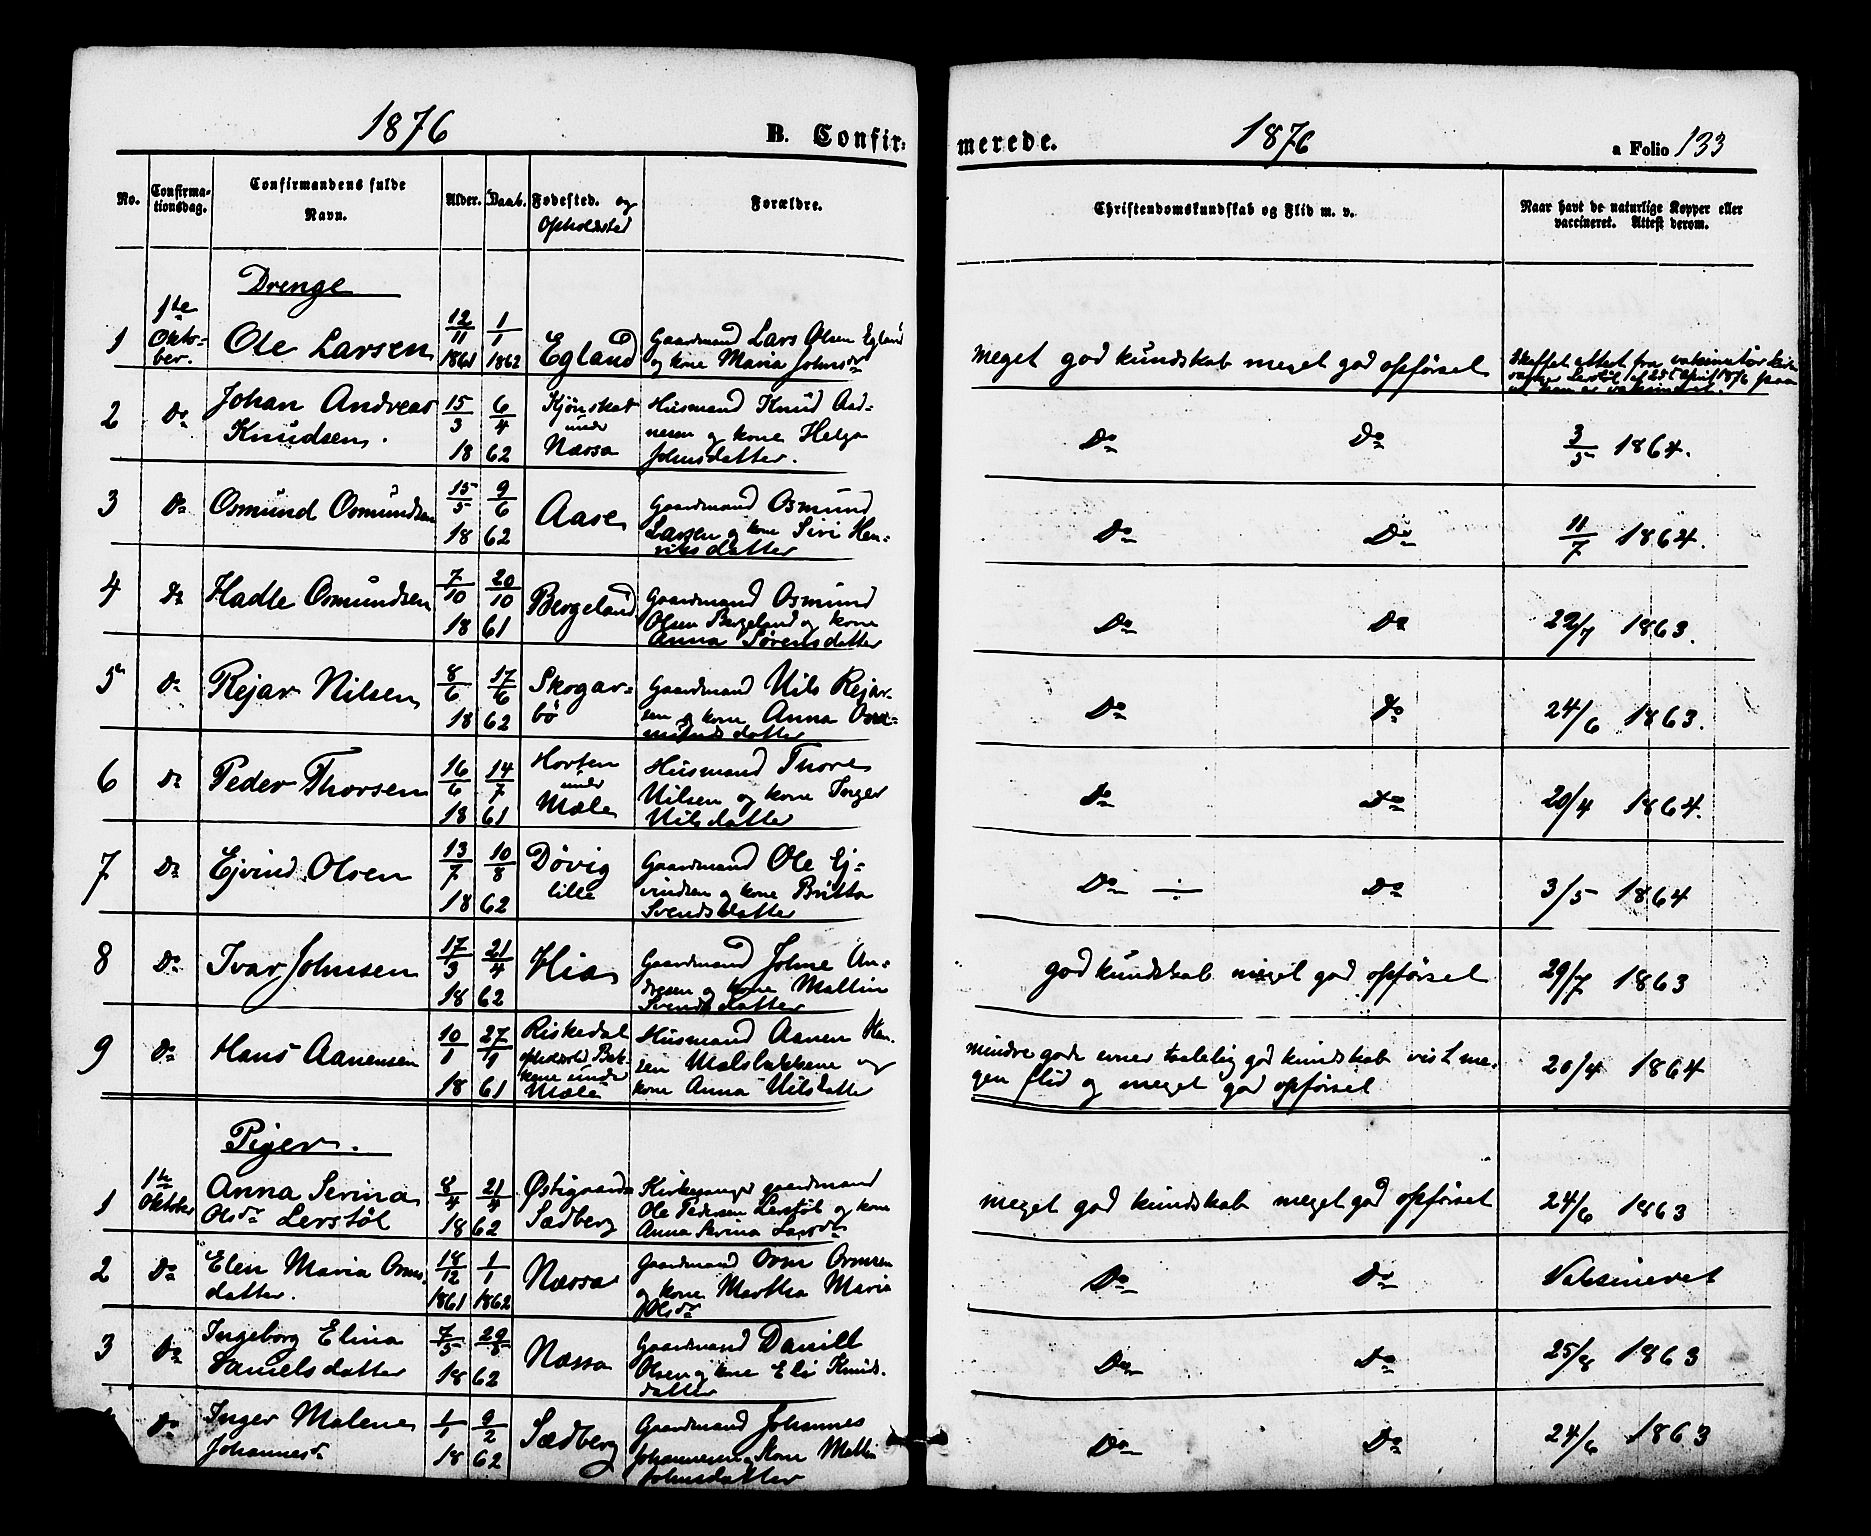 1876 B. Confir- merede. 1876 a Folio 133
No. Confirma-tionsdag. Confirmandens fulde Navn. Alder. Daab. Fødested. og Opholdssted Forældre. Christendomskundskab og Flid m. v. Naar havt de naturlige Kopper eller vaccineret. Attest derom.
Drenge
1 1te Oktober. Ole Larsen 12/11 1861 1/1 1862 Egland Gaardmand Lars Olsen Egland og kone Maria Johnsdr meget god kundskab meget god opförsel Skaffet attest fra
2 Do Johan Andreas Knudsen. 15/3 6/4 1862 under Næssa Husmand Knud Aadnesen og kone Helga Johnsdatter. Do Do 3/5 1864.
3 Do Osmund Osmundsen 15/5 9/6 1862 Aase Gaardmand Osmund Larsen og kone Siri Henriksdatter Do Do 11/7 1864.
4 Do Hadle Osmundsen 7/10 20/10 1861 Bergeland Gaardmand Osmund Olsen Bergeland og kone Anna Sørensdatter Do Do 22/7 1863.
5 Do Rejar Nilsen 8/6 17/6 1862 Skogarbø Gaardmand Nils Rejarsen og kone Anna Osmundsdatter Do Do 24/6 1863.
6 Do Peder Thorsen 16/6 14/7 1861 Horten under Mæle Husmand Thore Nilsen og kone Inger Nilsdatter Do Do 20/4 1864.
7 Do Ejvind Olsen 13/7 10/8 1862 Døvig lille Gaardmand Ole Ejvindsen og kone Britta Svendsdatter Do ÷ Do 3/5 1864
8 Do Ivar Johnsen 17/3 21/4 1862 Hia Gaardmand Johne Andresen og kone Mallin Svendsdatter god kundskab meget god opförsel 29/7 1863
9 Do Hans Aanensen 10/1 27/1 1861 Riskedal opholdssted Bakkene under Mæle Husmand Aanen Hansen og kone Anna Nilsdatter mindre gode evner taalelig god kundskab vist megen flid og meget god opförsel 20/4 1864
Piger.
1 1te Oktober Anna Serina Olsdr Lerstøl 8/4 21/4 1862 Østigaard Sædberg Kirkesanger gaardmand Ole Pedersen Lerstøl og kone Anna Serina Larsdr meget god kundskab meget god opförsel 24/6 1863
2 Do Elen Maria Ormsdatter. 18/12 1861 1/1 1862 Næssa Gaardmand Orm Ormsen og kone Martha Maria Olsdr Do Do Vaksineret
3 Do Ingeborg Elina Danielsdatter 7/5 29/5 1862 Næssa Gaardmand Daniel Olsen og kone Eli Knudsdatter Do Do 25/8 1863
Do Inger Malene Johannesdr 1/1 9/2 1862 Sædberg Gaardmand Johannes Johannesen og kone Johnsdatter Do Do 24/6 1863